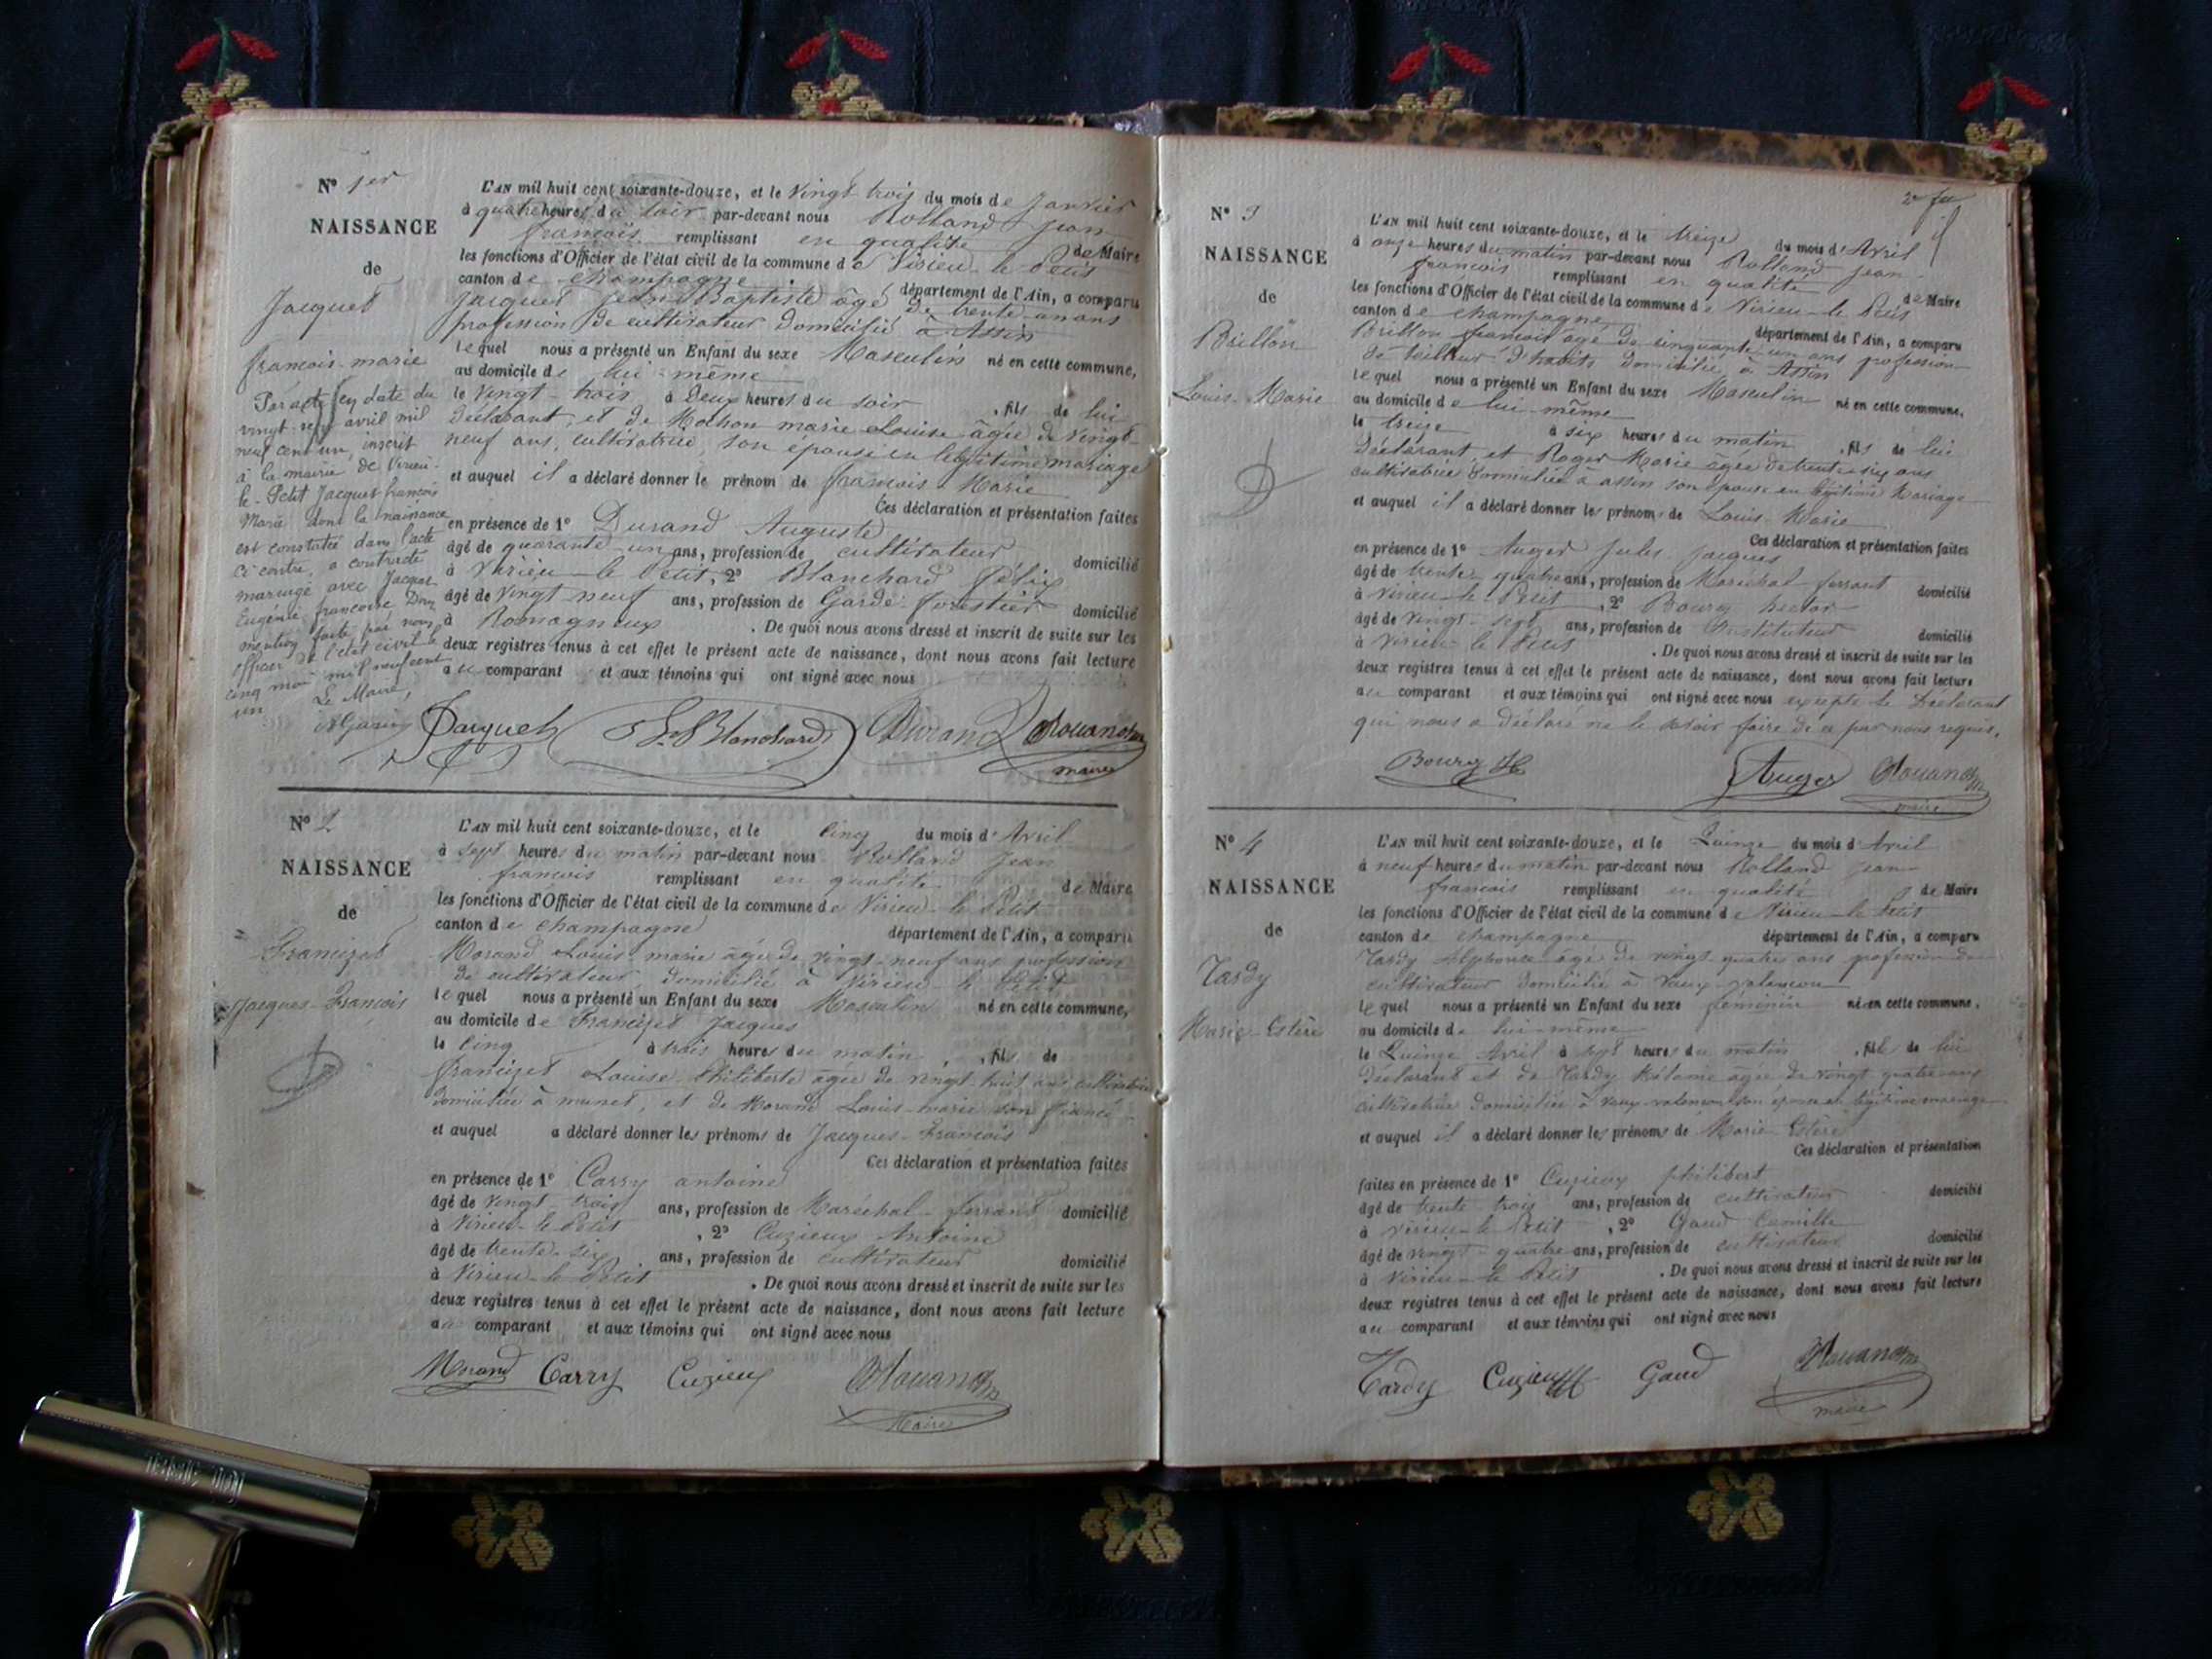 N° 1er
NAISSANCE
de
Jacquet
françois-marie
Par acte en date du
vingt sept avril mil
neuf cent un, inscrit
à la mairie de Virieu-
le-Petit Jacquet françois
Marie dont la naissance
est constatée dans l'acte
ci contre, a contracté
mariage avec Jacquet
Eugénie françoise Dont
mention faite par nous
officier de l'état civil le
cinq mai mil neuf cent
un Le Maire,
L'AN mil huit cent soixante-douze, et le Vingt trois du mois de Janvier
à quatre heures du soir par-devant nous Rolland jean
françois remplissant en qualité de Maire
les fonctions d'Officier de l'état civil de la commune de Virieu-le-Petit
canton de champagne département de l'Ain, a comparu
Jacquet Jean Baptiste âgé de trente un ans
profession de cultivateur domicilié à Assin
lequel nous a présenté un Enfant du sexe Masculin né en cette commune,
au domicile de lui-même
le Vingt-trois à Deux heures du soir, fils de lui
Déclarant, et de Mochon marie Louise âgée de vingt-
neuf ans, cultivatrice, son épouse en légitime mariage
et auquel il a déclaré donner le prénom de françois-Marie
Ces déclaration et présentation faites
en présence de 1° Durand Auguste
âgé de quarante-un ans, profession de cultivateur domicilié
à Virieu-le-Petit, 2° Blanchard Félix
âgé de Vingt neuf ans, profession de Garde-forestier domicilié
à Romagnieux. De quoi nous avons dressé et inscrit de suite sur les
deux registres tenus à cet effet le présent acte de naissance, dont nous avons fait lecture
au comparant et aux témoins qui ont signé avec nous
Jacquet Blanchard Durand
maire
N° 2
NAISSANCE
de
Francizet
Jacques-François
L'AN mil huit cent soixante-douze, et le cinq du mois d'Avril
à sept heures du matin par-devant nous Rolland Jean
françois remplissant en qualité de Maire
les fonctions d'Officier de l'état civil de la commune de Virieu-le-Petit
canton de champagne département de l'Ain, a comparu
Morand Louis-marie âgé de vingt-neuf ans profession
de cultivateur, domicilié à Virieu-le-Petit
lequel nous a présenté un Enfant du sexe Masculin né en cette commune,
au domicile de Francizet Jacques
le cinq à trois heures du matin, fils de
francizet Louise Philiberte âgée de vingt-huit ans cultivatrice
domiciliée à munet, et de Morand Louis-marie son fiancé
et auquel a déclaré donner les prénoms de Jacques-François
Ces déclaration et présentation faites
en présence de 1° Carry antoine
âgé de vingt-trois ans, profession de Maréchal-ferrant domicilié
à Virieu-le-Petit, 2° Cuzieux Antoine
âgé de trente-six ans, profession de cultivateur domicilié
à Virieu-le-Petit. De quoi nous avons dressé et inscrit de suite sur les
deux registres tenus à cet effet le présent acte de naissance, dont nous avons fait lecture
au comparant et aux témoins qui ont signé avec nous
Morand Carry Cuzieux
Maire
2e fu
N° 3
NAISSANCE
de
Brillon
Louis-Marie
L'AN mil huit cent soixante-douze, et le treize du mois d'Avril
à onze heures du matin par-devant nous Rolland jean-
françois remplissant en qualité de Maire
les fonctions d'Officier de l'état civil de la commune de Virieu-le-Petit
canton de champagne département de l'Ain, a comparu
Brillon françois âgé de cinquante-un ans profession
de tailleur d'habits domicilié à Assin
lequel nous a présenté un Enfant du sexe Masculin né en cette commune,
au domicile de lui-même
le treize à six heures du matin, fils de lui
Déclarant, et Roger Marie âgée de trente-six ans
cultivatrice domiciliée à assin son épouse en légitime Mariage
et auquel il a déclaré donner les prénoms de Louis-Marie
Ces déclaration et présentation faites
en présence de 1° Auger Jules-Jacques
âgé de trente-quatre ans, profession de Maréchal ferrant domicilié
à Virieu-le-Petit, 2° Bourg hector
âgé de vingt-sept ans, profession de Instituteur domicilié
à Virieu-le-Petit. De quoi nous avons dressé et inscrit de suite sur les
deux registres tenus à cet effet le présent acte de naissance, dont nous avons fait lecture
au comparant et aux témoins qui ont signé avec nous excepté le Déclarant
qui nous a déclaré ne le savoir faire de ce par nous requis.
Bourg H Auger
maire
N° 4
NAISSANCE
de
Tardy
Marie-Estère
L'AN mil huit cent soixante-douze, et le Quinze du mois d'Avril
à neuf heures du matin par-devant nous Rolland jean-
françois remplissant en qualité de Maire
les fonctions d'Officier de l'état civil de la commune de Virieu-le-Petit
canton de champagne département de l'Ain, a comparu
Tardy Alphonse âgé de vingt-quatre ans profession de
cultivateur domicilié à Vaux-valençon
lequel nous a présenté un Enfant du sexe féminin né en cette commune,
au domicile de lui-même
le Quinze Avril à sept heures du matin, fille de lui
Déclarant et de Tardy Mélanie âgée de vingt quatre ans
cultivatrice domiciliée à Vaux-valençon son épouse en légitime mariage
et auquel il a déclaré donner les prénoms de Marie Estère
Ces déclaration et présentation
faites en présence de 1° Cuzieux philibert
âgé de trente trois ans, profession de cultivateur domicilié
à Virieu-le-Petit, 2° Gaud Camille
âgé de vingt-quatre ans, profession de cultivateur domicilié
à Virieu-le-Petit. De quoi nous avons dressé et inscrit de suite sur les
deux registres tenus à cet effet le présent acte de naissance, dont nous avons fait lecture
au comparant et aux témoins qui ont signé avec nous
Tardy Cuzieux Gaud
maire